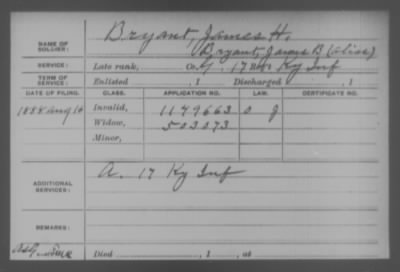 NAME OF SOLDIER: Bryant, James H.
Bryant, James B (alias)
SERVICE: Late rank, Co. G, 17 Reg't Ky Inf
TERM OF SERVICE: Enlisted , 1 Discharged , 1
DATE OF FILING. CLASS. APPLICATION NO. LAW. CERTIFICATE NO.
1888 Aug 16 Invalid, 1149663
Widow, 503073
Minor,
ADDITIONAL SERVICES: A. 17 Ky Inf
REMARKS:
Died , 1 , at